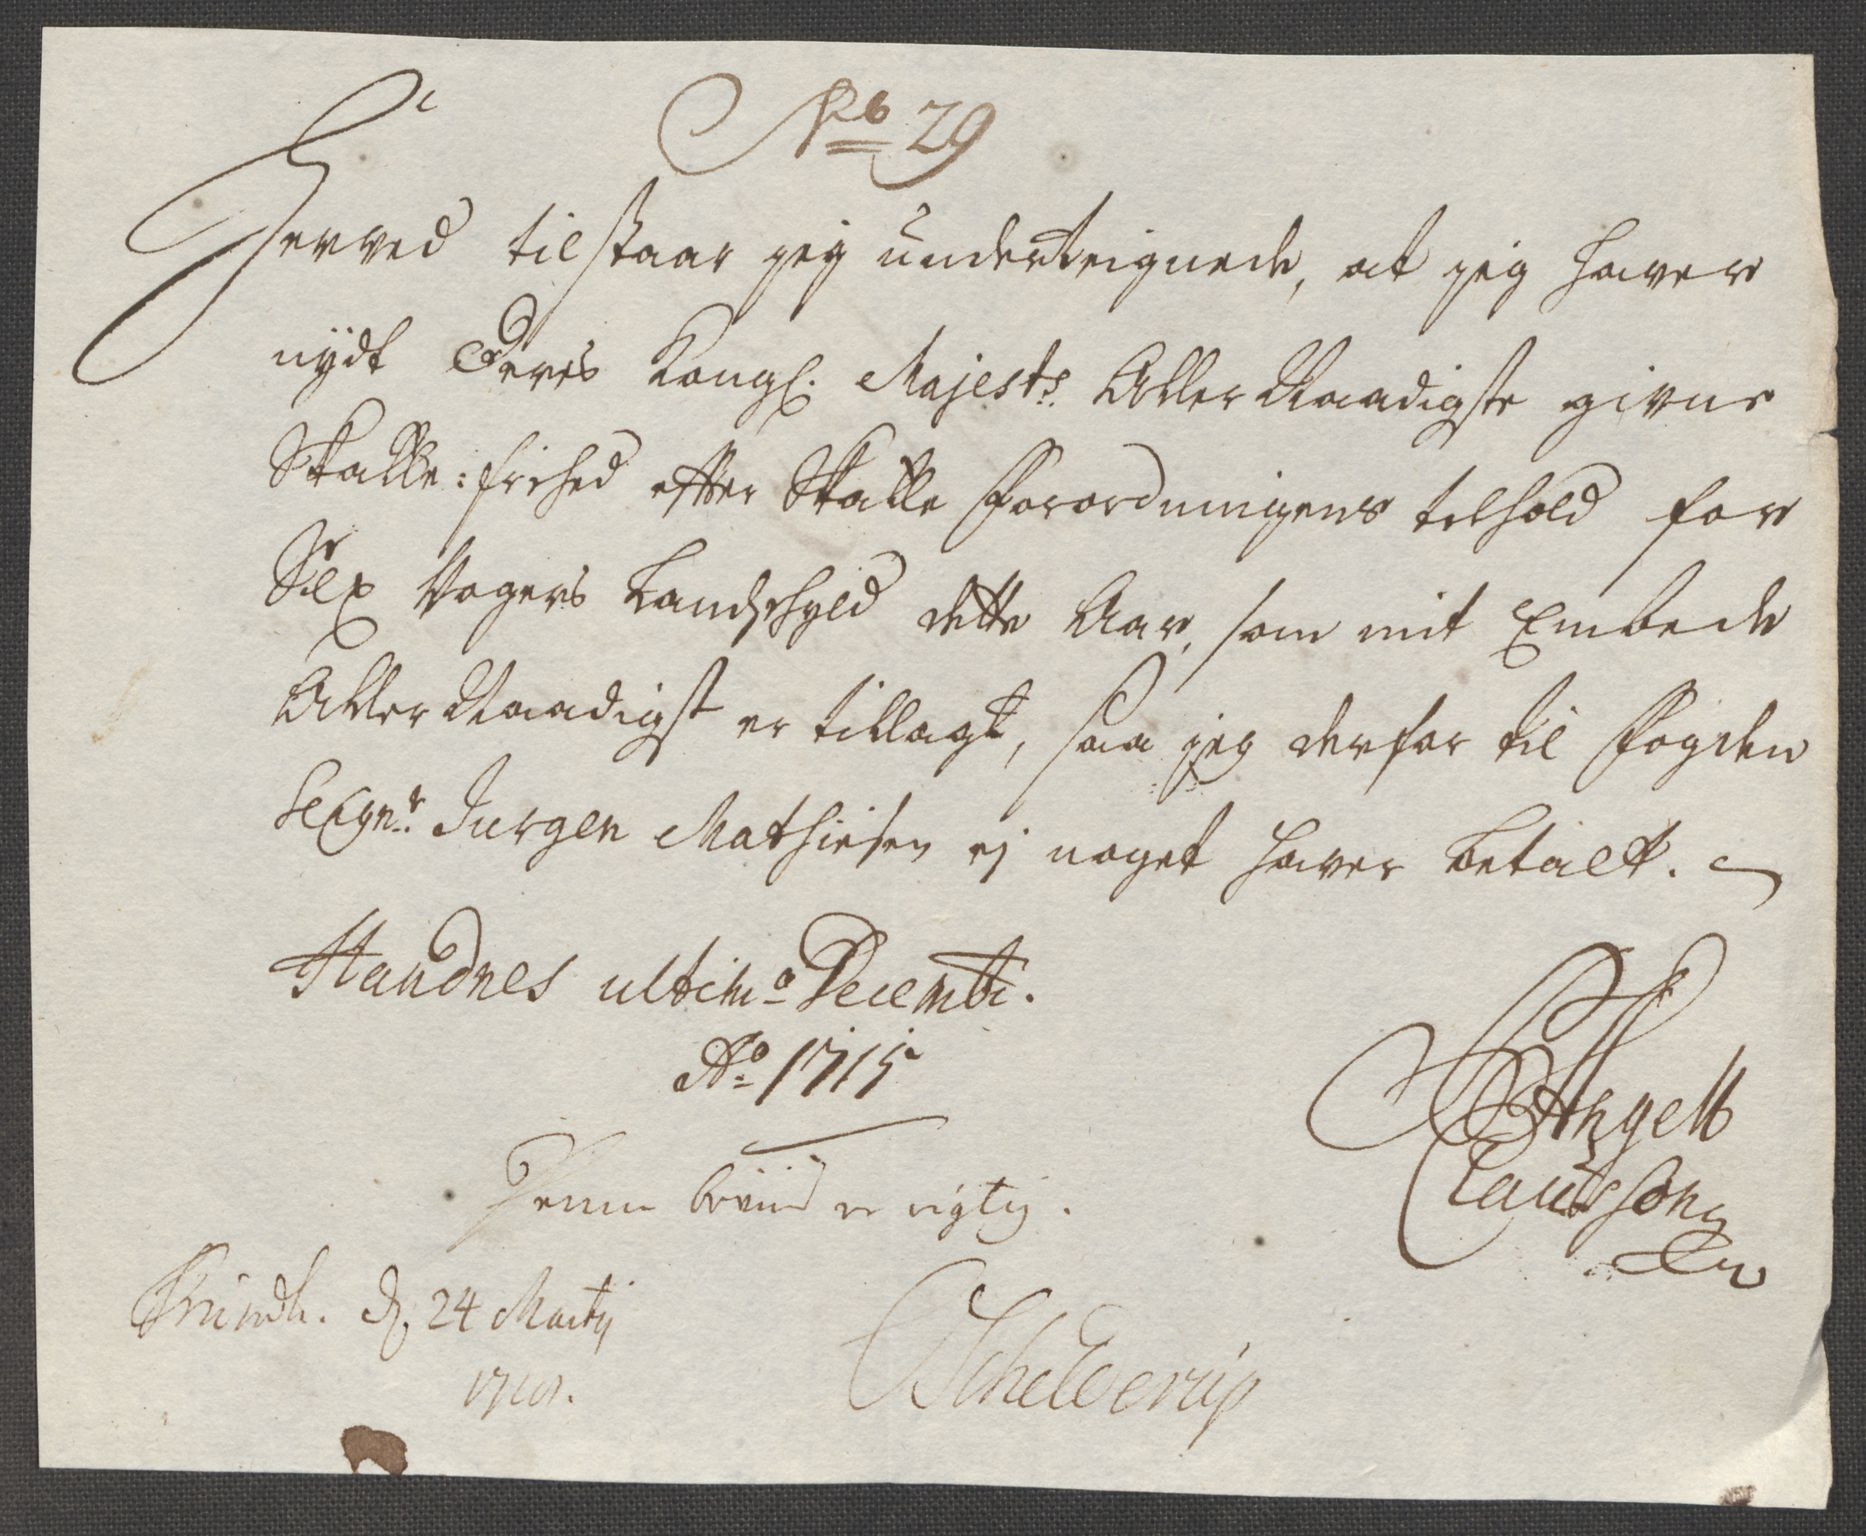 No 29
Herved tilstaar jeg underteignede, at jeg haver
nydt Deres Kongl. Majests. Aller Naadigste givne
Skatte: frihed efter Skatte Forordningens tilhold for
Sex Vogers Landschyld dette Aar, som mit Embede
Aller Naadigst er tillagt, saa jeg derfor til Fogden
Seigr. Jurgen Mathiesen ej noget haver betalt.
Standnes ultimo Decembr.
Ao 1715
Angell
Claussøn
Denne er rigtig.
Trundh. d. 24 Martij
Schelderup